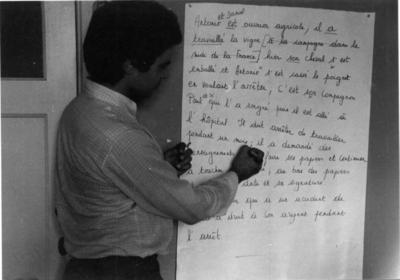 et Daniel
Antonio est ouvrier agricole, il a
travaillé la vigne à la campagne dans le
sud de la France hier son cheval s'est
emballé et Antonio s'est cassé le poignet
en voulant l'arrêter, C'est son compagnon
Paul qui l'a soigné puis il est allé à
l'hôpital Il doit arrêter de travailler
pendant un mois, il a demandé des
ses papiers et continuer
à toucher au bas des papiers
date et sa signature
qui a un accident de
a droit à son argent pendant
l'arrêt.